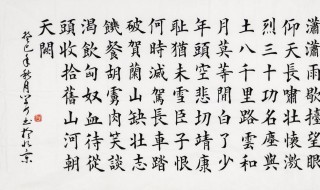 瀟瀟雨歇擡望眼
仰天長嘯壯懷激
烈三十功名塵與
土八千里路雲和
月莫等閒白了少
年頭空悲切靖康
耻猶未雪臣子恨
何時滅駕長車踏
破賀蘭山缺壯志
饑餐胡虜肉笑談
渴飲匈奴血待從
頭收拾舊山河朝
天闕
癸巳年秋月書於北京